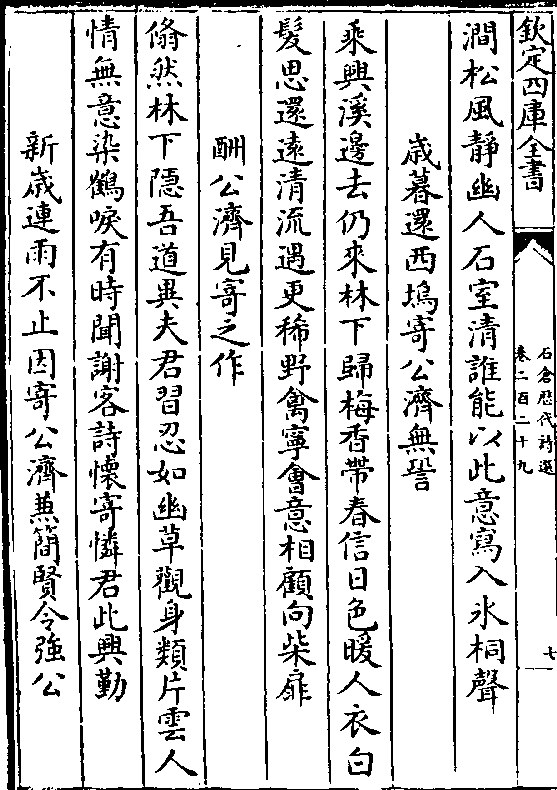 欽定四庫全書
石倉歷代詩選
卷二百二十九
七
澗松風靜幽人石室清誰能以此意寫入氷桐聲
歳暮還西塢寄公濟無訾
乘興溪邊去仍來林下歸梅香帶春信日色暖人衣白
髮思還逺清流遇更稀野禽寧會意相顧向柴扉
酬公濟見寄之作
翛然林下隱吾道異夫君習忍如幽草觀身類片雲人
情無意染鶴唳有時聞謝客詩懐寄憐君此興勤
新歳連雨不止因寄公濟兼簡賢令強公